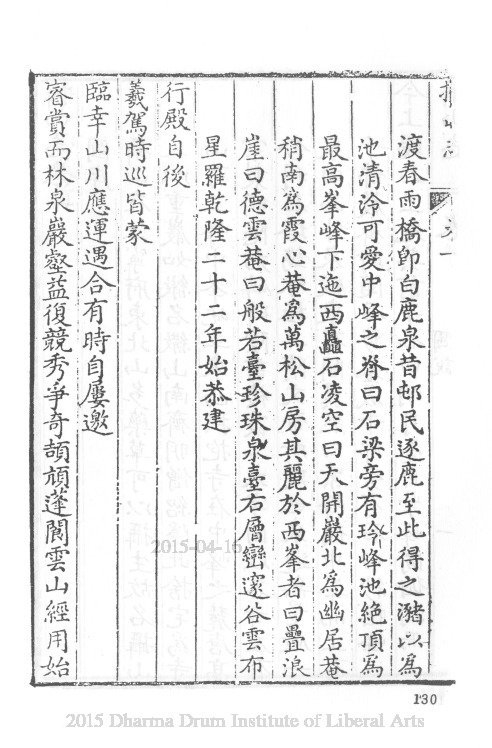 渡春雨橋卽白鹿泉昔邨民逐鹿至此得之瀦以爲
池清泠可愛中峰之脊曰石梁旁有玲峰池絶頂爲
最高峯峰下迤西矗石凌空曰天開巖北爲幽居菴
稍南爲霞心菴爲萬松山房其麗於西峯者曰疊浪
崖曰德雲菴曰般若臺珍珠泉臺右層巒邃谷雲布
星羅乾隆二十二年始恭建
行殿自後
羲駕時巡皆蒙
臨幸山川應運遇合有時自屢邀
睿賞而林泉巖壑益復競秀爭奇頡頏蓬閬雲山經用始
130
2015-04-16
2015 Dharma Drum Institute of Liberal Arts